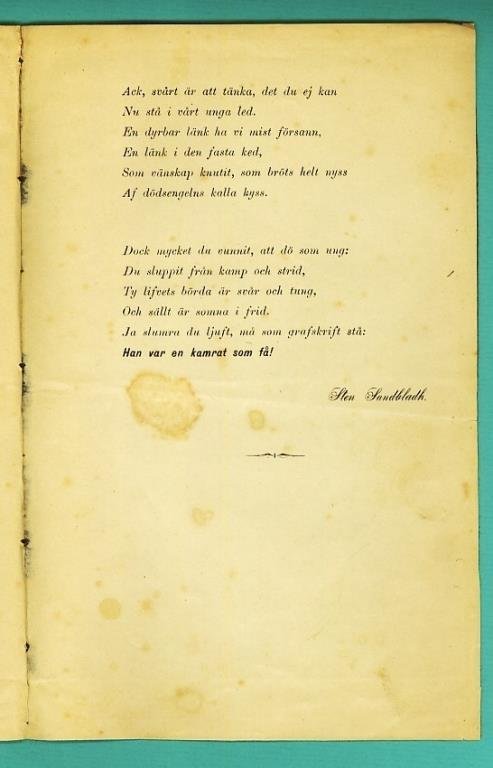 Ack, svårt är att tänka, det du ej kan
Nu stå i vårt unga led.
En dyrbar länk ha vi mist försann,
En länk i den fasta ked,
Som vänskap knutit, som bröts helt nyss
Af dödsengelns kalla kyss.
Dock mycket du vunnit, att dö som ung:
Du sluppit från kamp och strid,
Ty lifvets börda är svår och tung,
Och sällt är somna i frid.
Ja slumra du ljuft, må som grafskrift stå:
Han var en kamrat som få!
Sten Sandbladh.